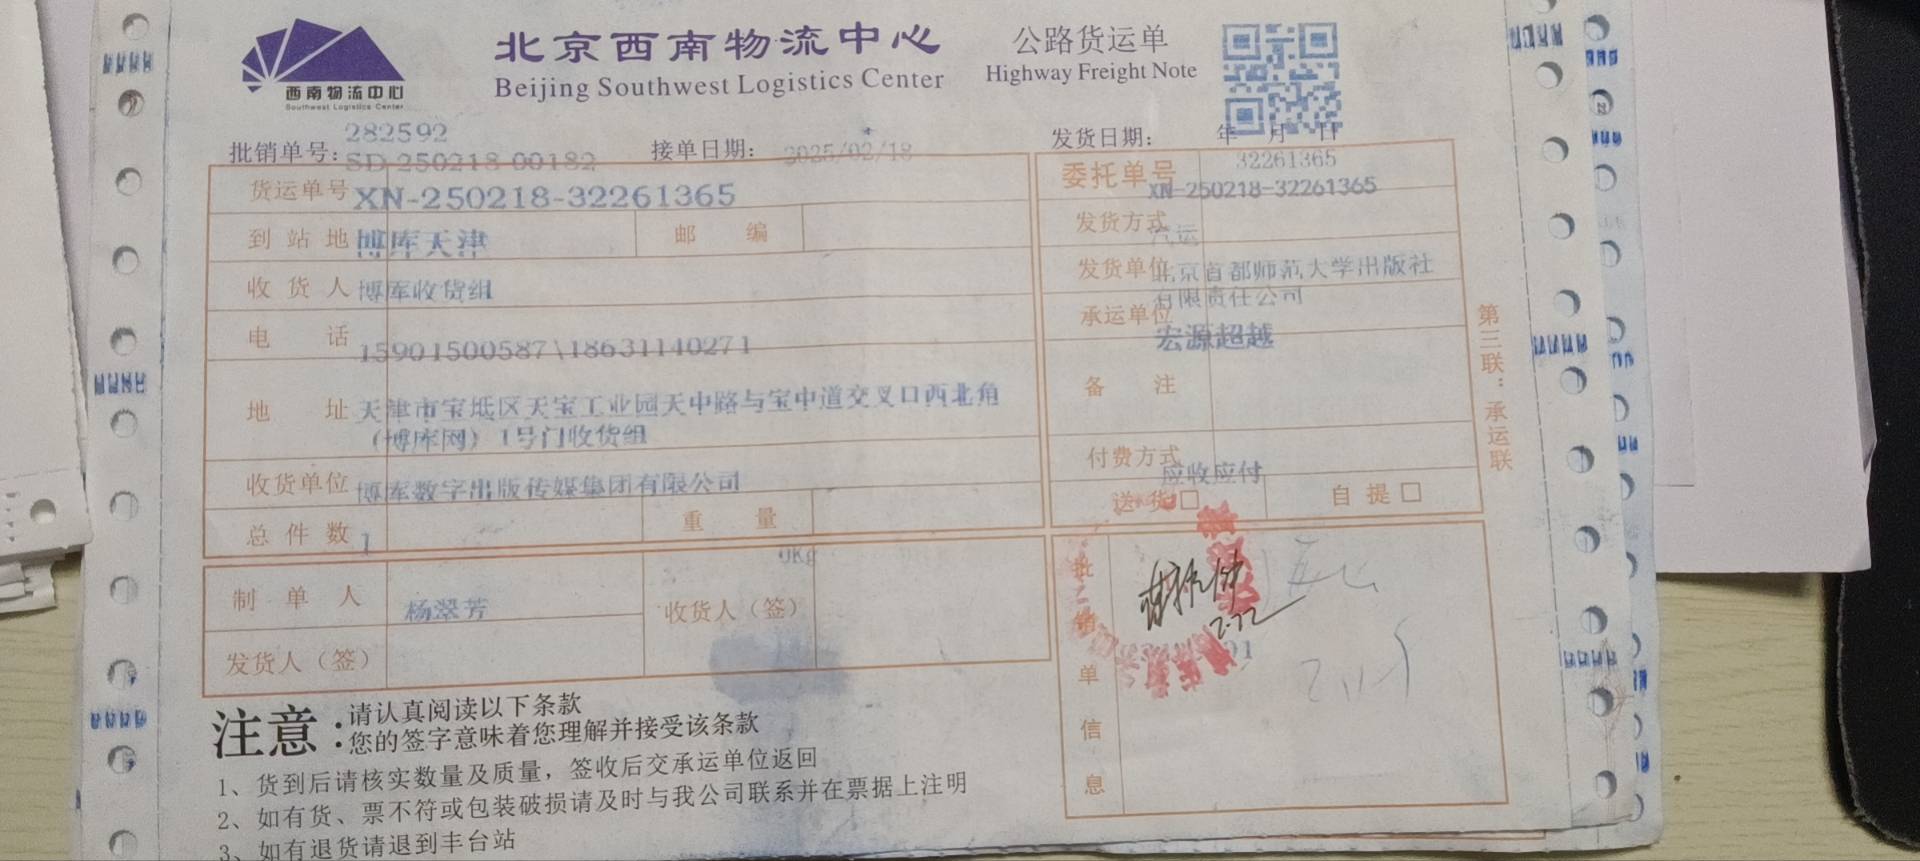 西南物流中心
Southwest Logistics Center
北京西南物流中心
Beijing Southwest Logistics Center
公路货运单
Highway Freight Note
282592
批销单号：SD-250218-00182
接单日期：2025/02/18
发货日期： 年 月 日
货运单号 XN-250218-32261365
到站地 博库天津
邮编
收货人 博库收货组
电话 15901500587\18631140271
地址 天津市宝坻区天宝工业园天中路与宝中道交叉口西北角
（博库网）1号门收货组
收货单位 博库数字出版传媒集团有限公司
总件数 1
重量 0Kg
制单人 杨翠芳
收货人（签）
发货人（签）
32261365
委托单号 XN-250218-32261365
发货方式 汽运
发货单位 北京首都师范大学出版社
有限责任公司
承运单位 宏源超越
备注
付费方式 应收应付
送货□
自提□
批销单信息
2.22
第三联：承运联
注意：请认真阅读以下条款
您的签字意味着您理解并接受该条款
1、货到后请核实数量及质量，签收后交承运单位返回
2、如有货、票不符或包装破损请及时与我公司联系并在票据上注明
3、如有退货请退到丰台站